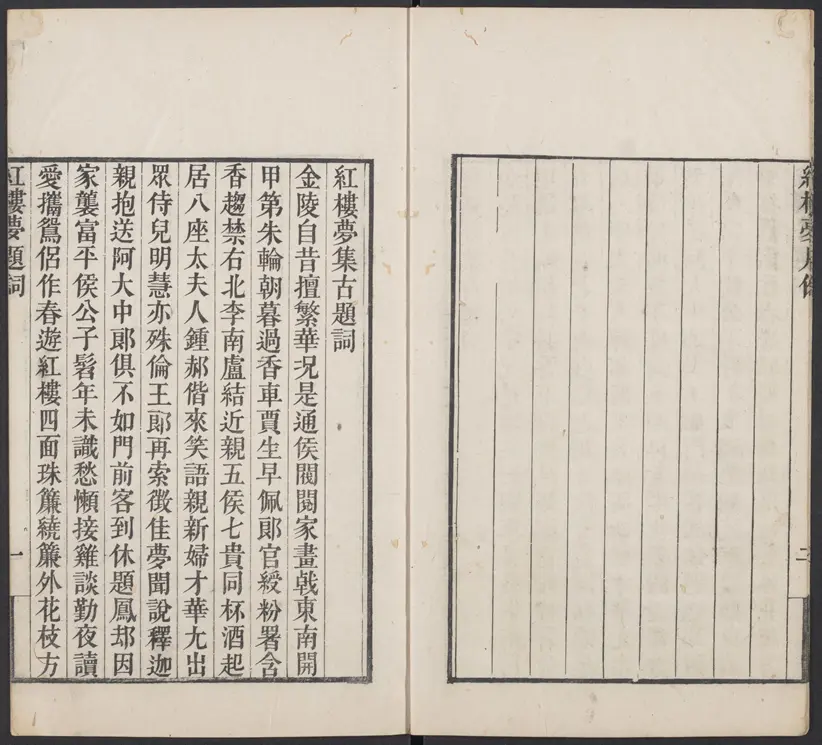 二
紅樓夢集古題詞
金陵自昔擅繁華況是通侯閥閱家畫戟東南開
甲第朱輪朝暮過香車賈生早佩郞官綬粉署含
香趨禁右北李南盧結近親五侯七貴同杯酒起
居八座太夫人鍾郝偕來笑語親新婦才華尢出
眾侍兒明慧亦殊倫王郞再索徵佳夢聞說釋迦
親抱送阿大中郞俱不如門前客到休題鳳却因
家襲富平侯公子髫年未識愁懶接雞談勤夜讀
愛攜鴛侶作春遊紅樓四面珠簾繞簾外花枝方
紅樓夢題詞
一